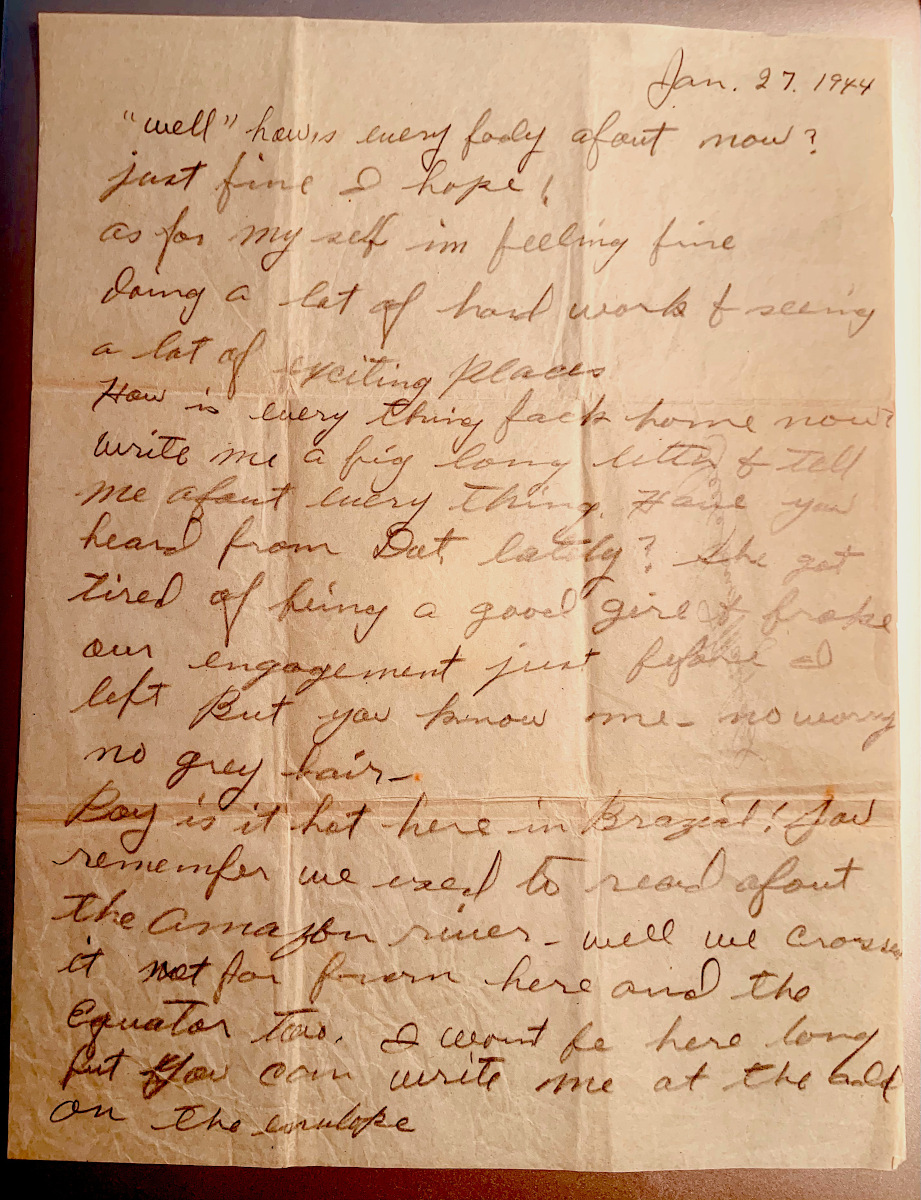 Jan. 27. 1944
"well" how is every body about now?
just fine I hope!
as for my self im feeling fine
doing a lot of hard work & seeing
a lot of exciting places
How is every thing back home now?
write me a big long letter & tell
me about every thing. Have you
heard from Dot lately? She got
tired of being a good girl & broke
our engagement just before I
left But you know me - no worry
no grey hair -
Boy is it hot here in Brazial! You
remember we used to read about
the amazon river - well we crossed
it not far from here and the
Equator too. I wont be here long
but you can write me at the add
on the envelope